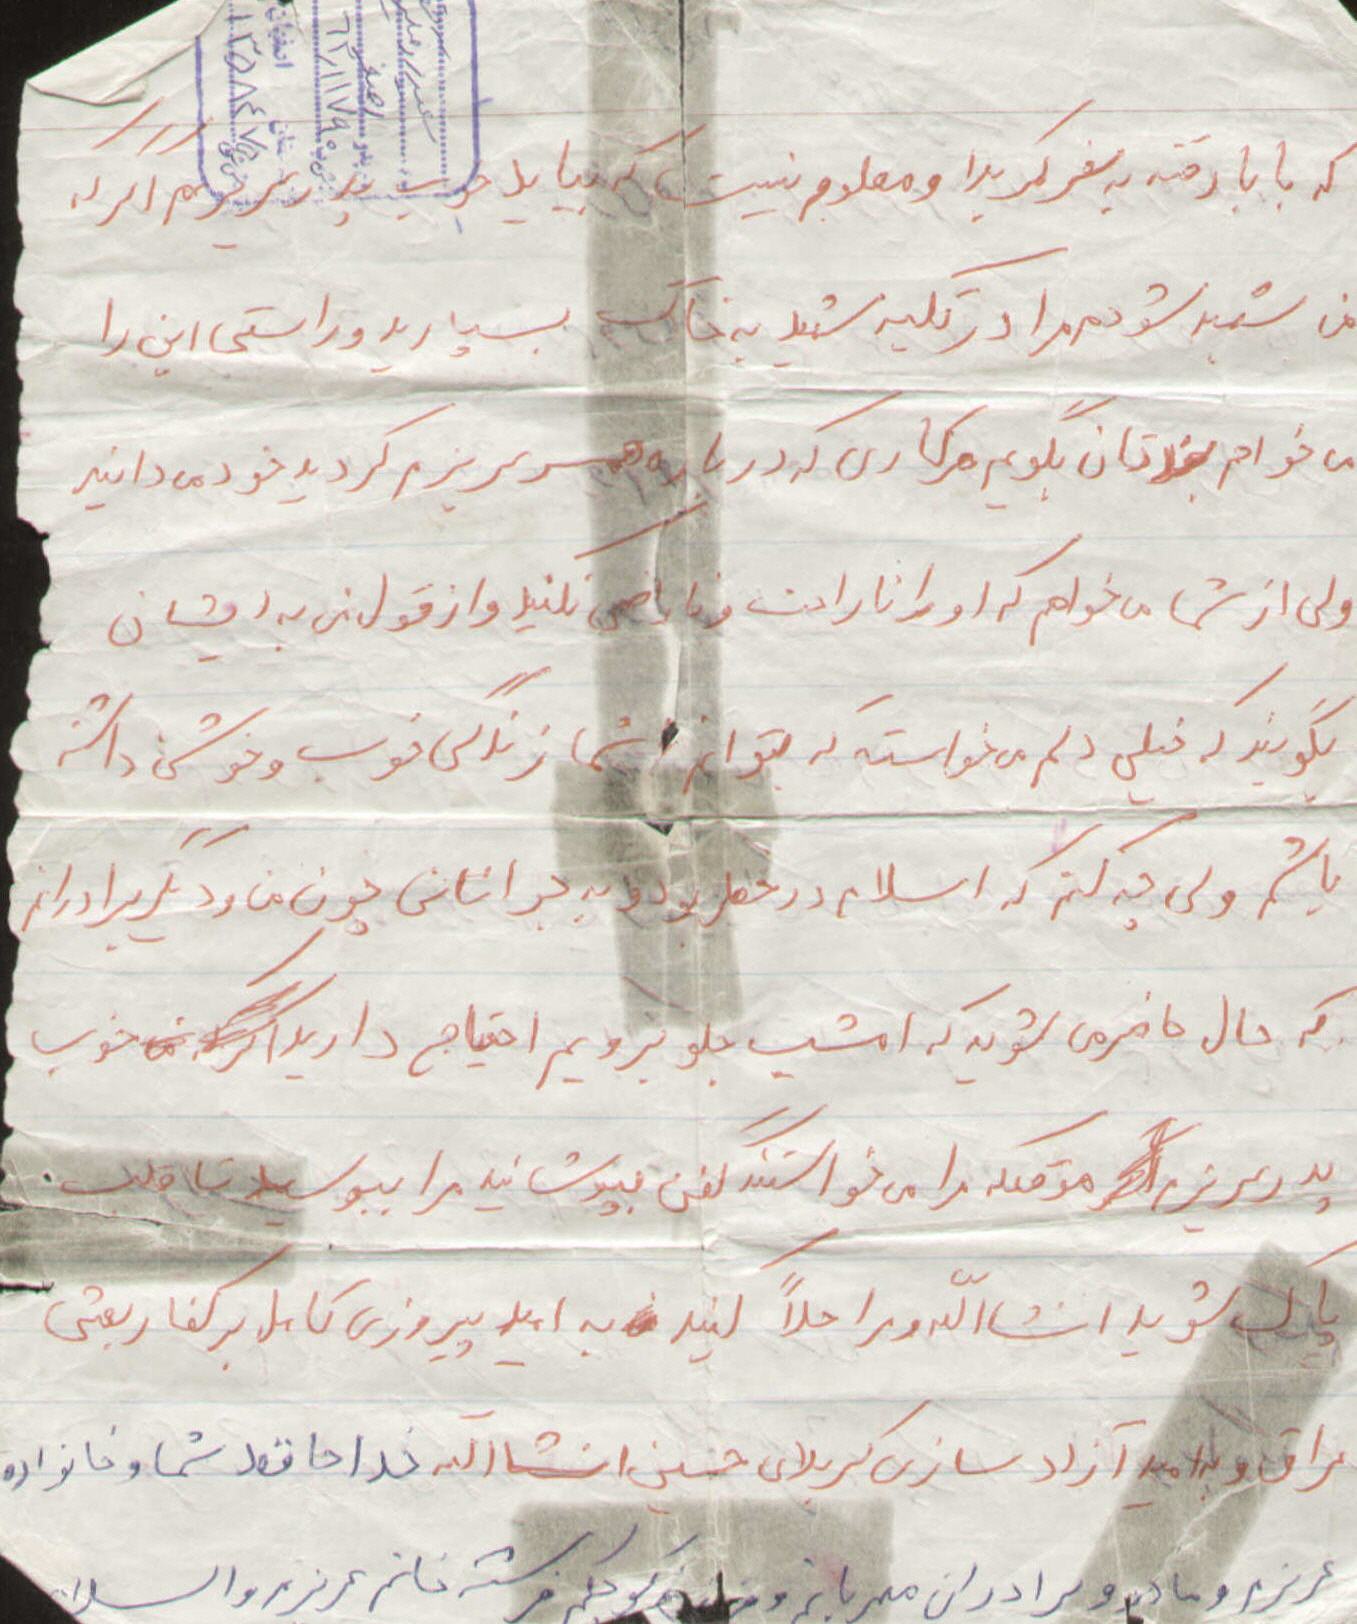 که بابا رفته به سفر کربلا و معلوم نیست که بیاید خوب پدر عزیزم اگر که
من شهید شودم مرا در تکیه شهید به خاک بسپارید و راستی این را
می خواهم بهتان بگویم هر کاری که درباره همسر عزیزم کردید خود می دانید
ولی از شما می خواهم که او را ناراحت و ناراضی نکنید و از قول من به ایشان
بگویند که خیلی دلم می خواسته که بتوانم با شما زندگی خوب و خوشی داشته
باشم ولی چه کنم که اسلام در خطر بود و به جوانانی چون من و دیگر برادرانم
که حال حاضر می شوند که امشب جلو برویم احتیاج دارید خوب
پدر عزیزم موقعکه مرا می خواستند کفن بپوشانید مرا ببوسید تا قلب
پاک شوید انشاالله و مرا حلاً کنید به امید پیروزی کامل بر کفار بعثی
عراق و به امید آزاد سازی کربلای حسینی انشاالله خدا حافظ شما و خانواده
عزیزم و مادر و برادران مهربانم و کوچکم فرشته خانم عزیزم والسلام